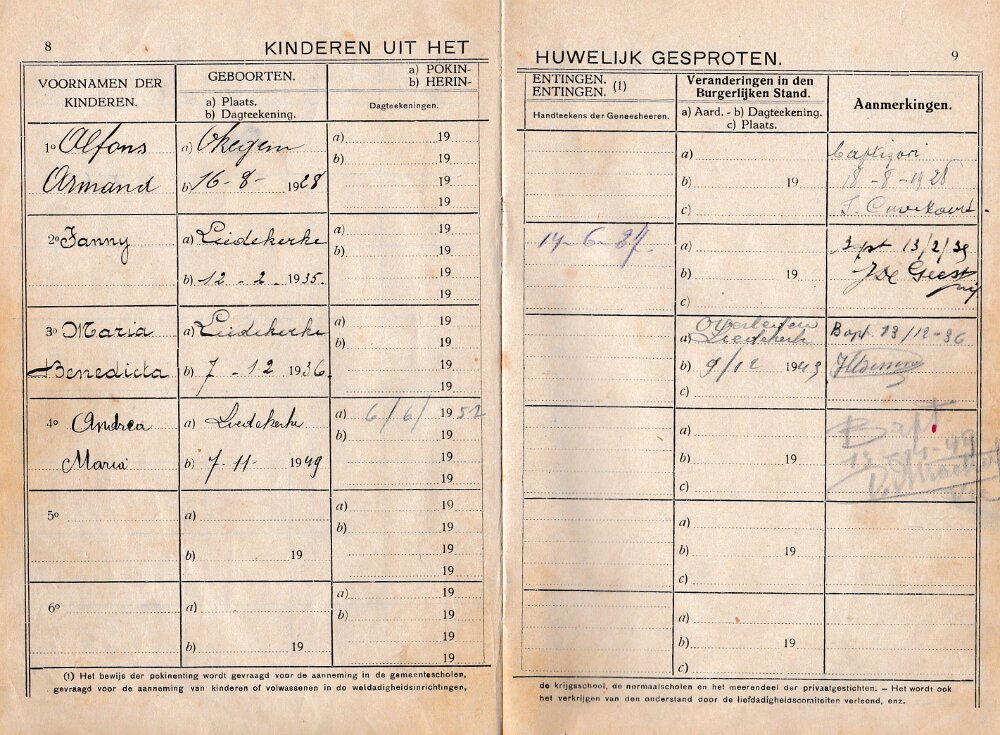 8
KINDEREN UIT HET
VOORNAMEN DER
KINDEREN.
GEBOORTEN.
a) Plaats.
b) Dagteekening.
a) POKIN-
b) HERIN-
Dagteekeningen.
1º Alfons
Armand
a) Okegem
b) 16-8- 1928
a) 19
b) 19
19
19
2º Fanny
a) Liedekerke
b) 12 - 2 - 1935.
a) 19
b) 19
19
19
3º Maria
Benedicta
a) Liedekerke
b) 7 - 12 1936.
a) 19
b) 19
19
19
4º Andrea
Maria
a) Liedekerke
b) 7-11- 1949
a) 6/6/ 1952
b) 19
19
19
5º
a)
b) 19
a) 19
b) 19
19
19
6º
a)
b) 19
a) 19
b) 19
19
19
(1) Het bewijs der pokinenting wordt gevraagd voor de aanneming in de gemeentescholen,
gevraagd voor de aanneming van kinderen of volwassenen in de weldadigheidsinrichtingen,
HUWELIJK GESPROTEN.
9
ENTINGEN.
ENTINGEN. (1)
Handteekens der Geneesheeren.
Veranderingen in den
Burgerlijken Stand.
a) Aard. - b) Dagteekening.
c) Plaats.
Aanmerkingen.
a)
b) 19
c)
18-8-1928
14-6-37.
a)
b) 19
c)
13/2/35
De Geest
Overleden
a) Liedekerk
b) 9/12 1943
c)
Bapt 13/12-36
a)
b) 19
c)
Bapt
a)
b) 19
c)
a)
b) 19
c)
de krijgsschool, de normaalscholen en het meerendeel der privaatgestichten. – Het wordt ook
het verkrijgen van den onderstand door de liefdadigheidscomiteiten verleend, enz.